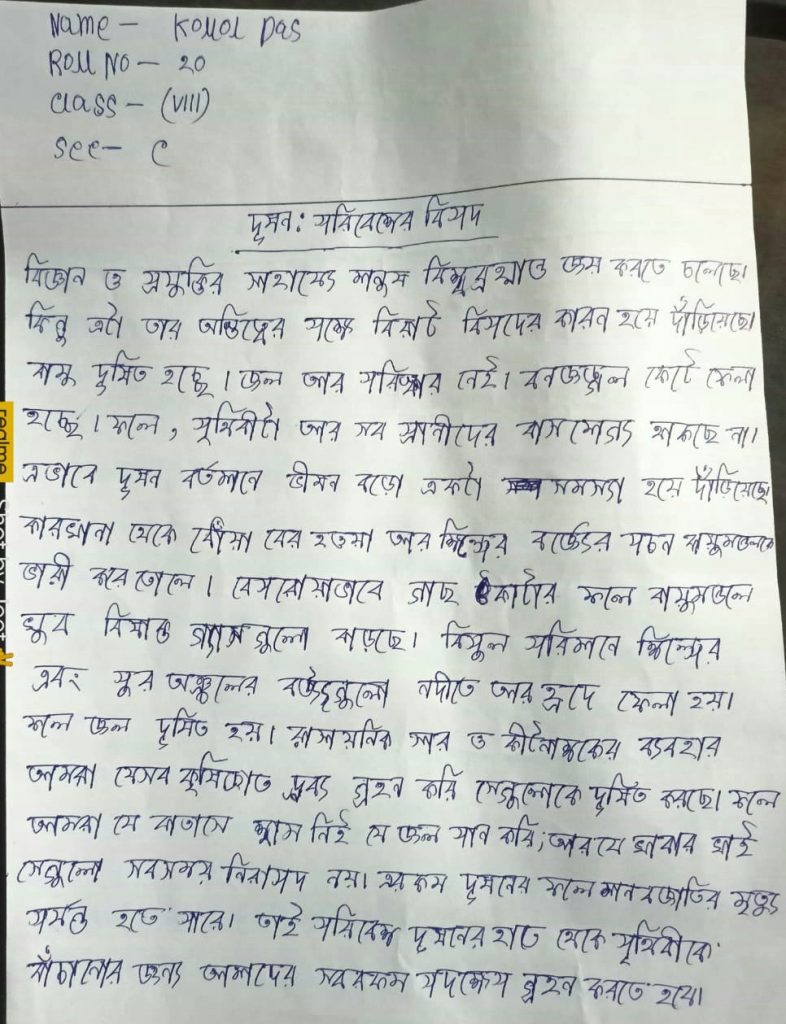 Name - Komol Das
Roll No - 20
Class - (VIII)
Sec - C
দূষন: পরিবেশের বিপদ
বিজ্ঞান ও প্রযুক্তির সাহায্যে মানুষ বিশ্বব্রহ্মাণ্ড জয় করতে চলেছে।
কিন্তু এটা তার অস্তিত্বের পক্ষে বিরাট বিপদের কারন হয়ে দাঁড়িয়েছে।
বায়ু দূষিত হচ্ছে। জল আর পরিষ্কার নেই। বনজঙ্গল কেটে ফেলা
হচ্ছে। ফলে, পৃথিবীটা আর সব প্রানীদের বাসযোগ্য থাকছে না।
এভাবে দূষন বর্তমানে ভীষন বড়ো একটা সমস্যা হয়ে দাঁড়িয়েছে।
কারখানা থেকে ধোঁয়া বের হওয়া আর শিল্পের বর্জ্যের পচন বায়ুমণ্ডলকে
ভারী করে তোলে। বেপরোয়াভাবে গাছ কাটার ফলে বায়ুমণ্ডলে
খুব বিষাক্ত গ্যাস গুলো বাড়ছে। বিপুল পরিমানে শিল্পের
এবং পুর অঞ্চলের বর্জ্যগুলো নদীতে আর হ্রদে ফেলা হয়।
ফলে জল দূষিত হয়। রাসায়নিক সার ও কীটনাশকের ব্যবহার
আমরা যেসব কৃষিজাত দ্রব্য গ্রহন করি সেগুলোকে দূষিত করছে। ফলে
আমরা যে বাতাসে শ্বাস নিই যে জল পান করি, আর যে খাবার খাই
সেগুলো সবসময় নিরাপদ নয়। এরকম দূষনের ফলে মানবজাতির মৃত্যু
পর্যন্ত হতে পারে। তাই পরিবেশ দূষনের হাত থেকে পৃথিবীকে
বাঁচানোর জন্য আমাদের সবরকম পদক্ষেপ গ্রহন করতে হবে।
realme Shot by